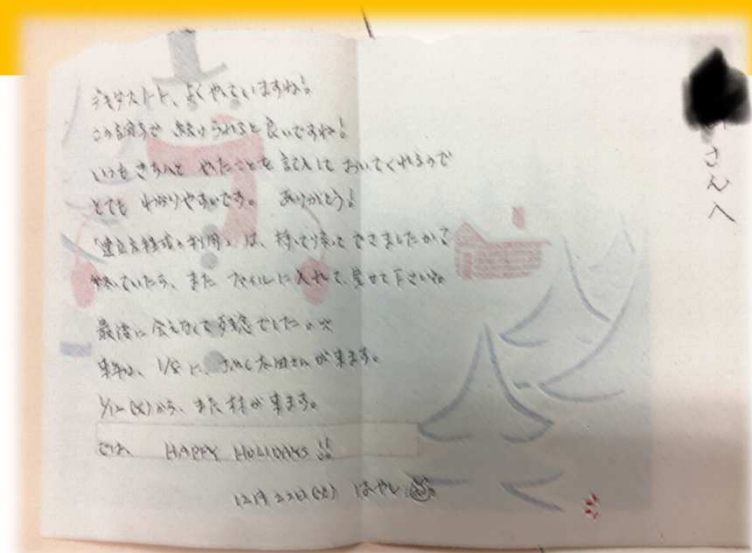 さんへ
テキストト、よくやっていますね!
この調子で 続けられると良いですね!
いつも きちんと やったことを 記入して おいてくれるので
とても わかりやすいです。 ありがとう!
「連立方程式の利用」は、持って帰って できましたか?
やっていたら、また ファイルに入れて、見せて下さいね
最後に 会えなくて 残念でした。
来年は、1/8 に、 太田さんが来ます。
1/12 から、また 林が来ます。
では HAPPY HOLIDAYS !!
12月22日(火) はやし